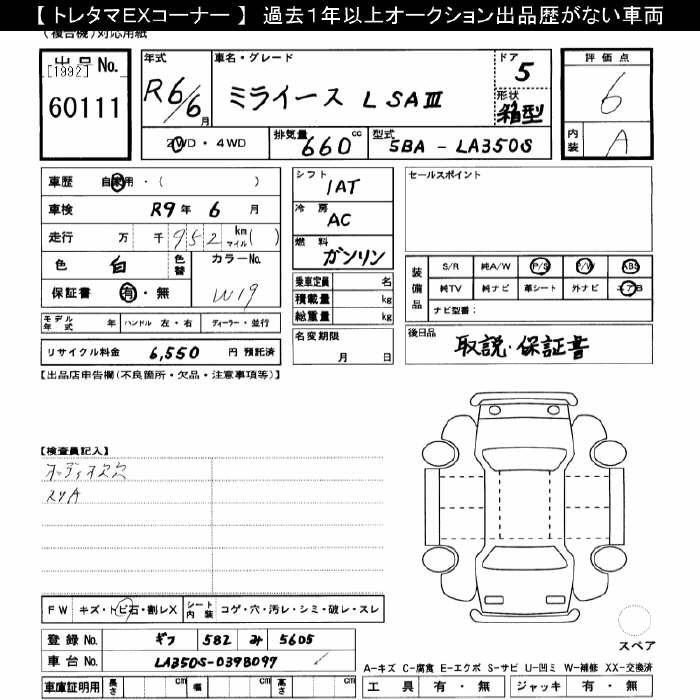 【 トレタマEXコーナー 】 過去1年以上オークション出品歴がない車両
(複合機)対応用紙
出品No.
[1992]
60111
年式
R6/6月
車名・グレード
ミライース L SAⅢ
ドア
5
形状
箱型
評価点
6
内装
A
2WD・4WD
排気量
660 cc
型式
5BA - LA350S
車歴 自家用・( )
車検 R9年 6月
走行 万 千 952 km マイル( )
色 白 色替
カラーNo.
W19
保証書 有・無
モデル年式 年 ハンドル 左・右 ディーラー・並行
リサイクル料金 6,550 円 預託済
シフト
1AT
冷房
AC
燃料
ガソリン
乗車定員 名
積載量 kg
総重量 kg
名変期限
月 日
セールスポイント
装備品
S/R 純A/W P/S P/W ABS
純TV 純ナビ 革シート 外ナビ エアB
ナビ型番:
後日品
取説・保証書
【出品店申告欄(不良箇所・欠品・注意事項等)】
【検査員記入】
オーディオ欠
スリA
FW キズ・トビ石・割レX
シート内装 コゲ・穴・汚レ・シミ・破レ・スレ
登録No. ギフ 582 み 5605
車台No. LA350S-0398097
車庫証明用 長さ cm 幅 cm 高さ cm
スペア
A-キズ C-腐食 E-エクボ S-サビ U-凹ミ W-補修 XX-交換済
工具 有・無 ジャッキ 有・無